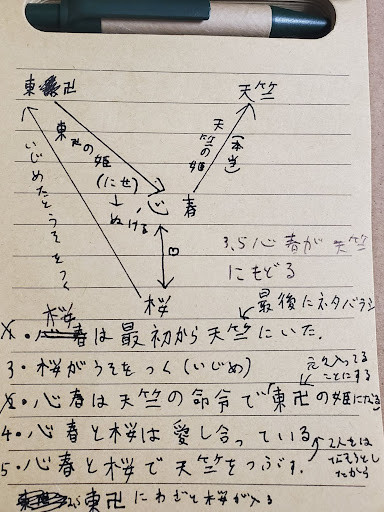 東卍
天竺
東卍の姫
(にせ)
ぬける
天竺の姫
(本当)
いじめたとうそをつく
心
春
3.5心春が天竺
にもどる
桜
最後にネタバラシ
桜
・は最初から天竺にいた.
3・桜がうそをつく(いじめ)
元々入ってる
ことにする
・心春は天竺の命令で「東卍の姫になる
4・心春と桜は愛し合っている
2人をは
うとした
だから
5・心春と桜で天竺をつぶす.
東卍にわざと桜が入る